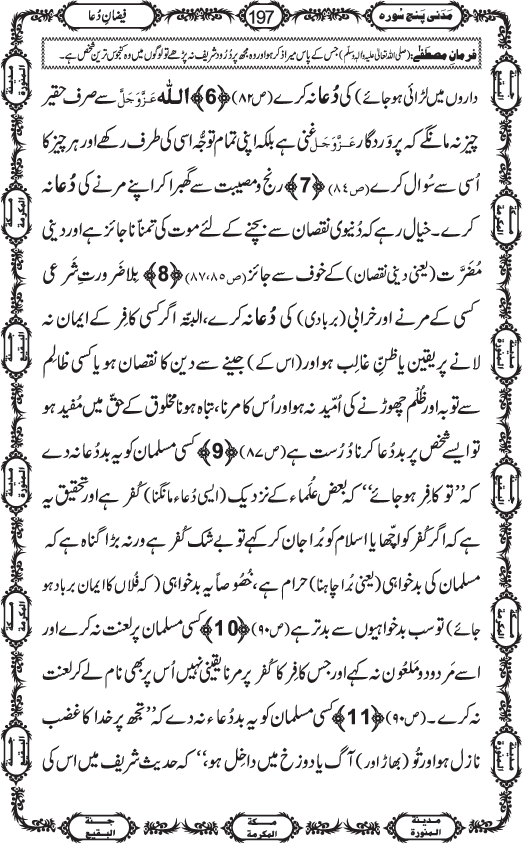 مَدَنی پنج سورہ
197
فیضانِ دُعا
فرمانِ مصطفٰے: (صلی اللہ تعالیٰ علیہ والہٖ وسلّم) جس کے پاس میرا ذکر ہوا ور وہ مجھ پر دُرُود شریف نہ پڑھے تو لوگوں میں وہ کنجوس ترین شخص ہے۔
داروں میں لڑائی ہوجائے) کی دُعا نہ کرے (ص۸۲) ﴿6﴾ اللہ عَزَّوَجَلَّ سے صرف حقیر
چیز نہ مانگے کہ پروَردگار عَزَّوَجَلَّ غنی ہے بلکہ اپنی تمام توجُّہ اسی کی طرف رکھے اور ہر چیز کا
اُسی سے سُوال کرے (ص۸٤) ﴿7﴾ رنج و مصیبت سے گھبرا کر اپنے مرنے کی دُعا نہ
کرے۔ خیال رہے کہ دُنیوی نقصان سے بچنے کے لئے موت کی تمنّا ناجائز ہے اور دینی
مُضَرَّت (یعنی دینی نقصان) کے خوف سے جائز (ص۸۷،۸۵) ﴿8﴾ بِلا ضَرورتِ شَرعی
کسی کے مرنے اور خرابی (بربادی) کی دُعا نہ کرے، البتّہ اگر کسی کافر کے ایمان نہ
لانے پر یقین یا ظنِّ غالِب ہو اور (اس کے) جینے سے دین کا نقصان ہو یا کسی ظالِم
سے توبہ اور ظُلْم چھوڑنے کی اُمّید نہ ہو اور اُس کا مرنا، تباہ ہونا مخلوق کے حقّ میں مُفید ہو
تو ایسے شخص پر بددُعا کرنا دُرُست ہے (ص۸۷) ﴿9﴾ کسی مسلمان کو یہ بددُعا نہ دے
کہ ”تو کافِر ہو جائے“ کہ بعض عُلَماء کے نزدیک (ایسی دُعاء مانگنا) کُفر ہے اور تحقیق یہ
ہے کہ اگر کُفر کو اچھّا یا اسلام کو بُرا جان کر کہے تو بے شک کُفر ہے ورنہ بڑا گناہ ہے کہ
مسلمان کی بدخواہی (یعنی بُرا چاہنا) حرام ہے، خُصُوصاً یہ بدخواہی (کہ فُلاں کا ایمان برباد ہو
جائے) تو سب بدخواہیوں سے بدتر ہے (ص۹۰) ﴿10﴾ کسی مسلمان پر لعنت نہ کرے اور
اسے مَردود و ملعُون نہ کہے اور جس کافِر کا کُفر پر مرنا یقینی نہیں اُس پر بھی نام لے کر لعنت
نہ کرے۔ (ص۹۰) ﴿11﴾ کسی مسلمان کو یہ بددُعاء نہ دے کہ ”تجھ پر خدا کا غضب
نازِل ہو اور تُو (بھاڑ اور) آگ یا دوزخ میں داخِل ہو،“ کہ حدیث شریف میں اس کی
مدینۃ المنورہ
مکۃ المکرمہ
جنۃ البقیع